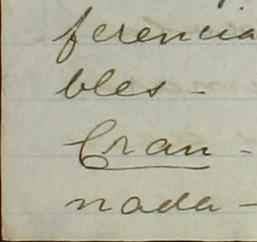 ferencia
bles -
Gran -
nada -